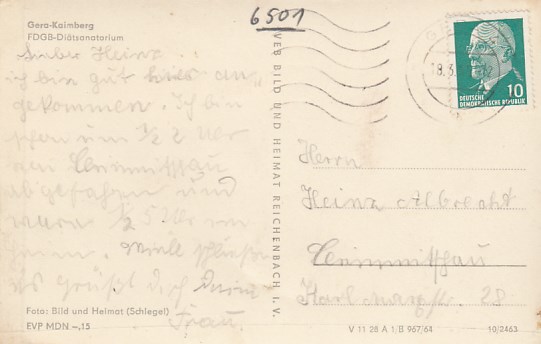 6501
Gera-Kaimberg
FDGB-Diätsanatorium
Lieber Heinz
ich bin gut hier an„
gekommen. Ich bin
schon um ½ 2 Uhr
von Crimmitschau
abgefahren und
war ½ 5 Uhr im
Heim.
es grüßt dich Deine
Frau.
Foto: Bild und Heimat (Schlegel)
EVP MDN –,15
VEB BILD UND HEIMAT REICHENBACH I. V.
DEUTSCHE
DEMOKRATISCHE REPUBLIK
10
Herrn
Heinz Albrecht
Crimmitschau
Karl Marxstr. 28
V 11 28 A 1 B 967/64
10/2463